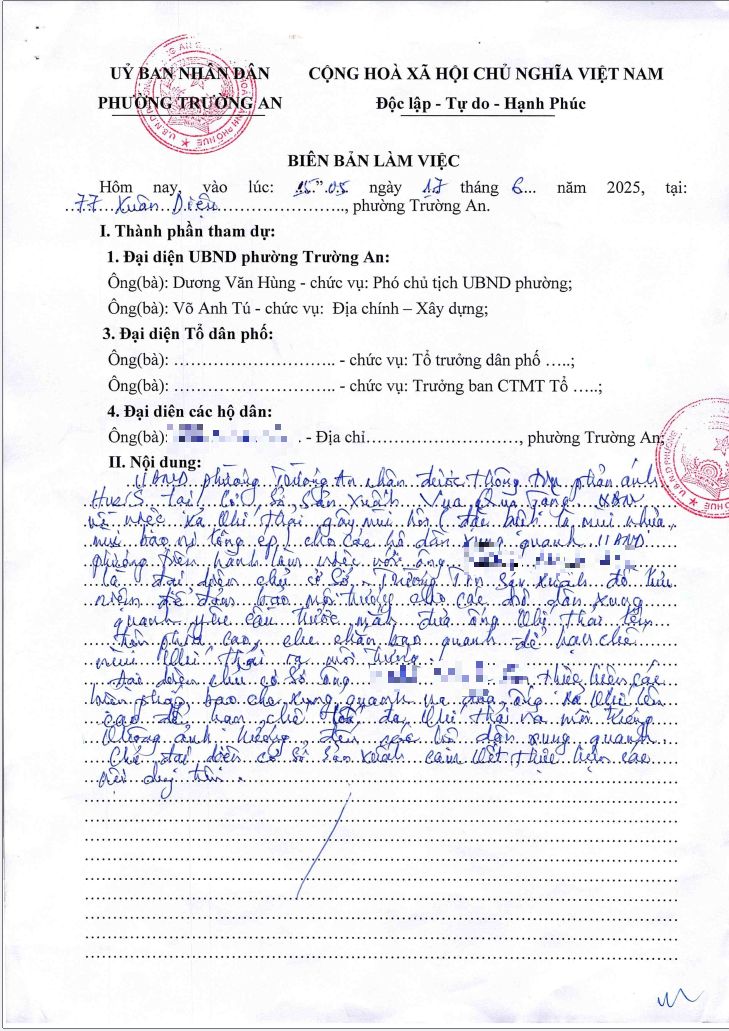 UỶ BAN NHÂN DÂN
PHƯỜNG TRƯỜNG AN
CỘNG HOÀ XÃ HỘI CHỦ NGHĨA VIỆT NAM
Độc lập - Tự do - Hạnh Phúc
BIÊN BẢN LÀM VIỆC
Hôm nay, vào lúc: 15.”.05 ngày 17 tháng 6... năm 2025, tại:
77 Xuân Diệu, phường Trường An.
I. Thành phần tham dự:
1. Đại diện UBND phường Trường An:
Ông(bà): Dương Văn Hùng - chức vụ: Phó chủ tịch UBND phường;
Ông(bà): Võ Anh Tú - chức vụ: Địa chính – Xây dựng;
3. Đại diện Tổ dân phố:
Ông(bà): ................................ - chức vụ: Tổ trưởng dân phố …..;
Ông(bà): ................................ - chức vụ: Trưởng ban CTMT Tổ …..;
4. Đại diên các hộ dân:
Ông(bà): - Địa chỉ……………………, phường Trường An;
II. Nội dung:
UBND phường Trường An nhận được thông tin phản ánh
HueS tại cơ sở sản xuất
về việc xả khí thải gây mùi hôi (đặc biệt là mùi nhựa
mùi bao ni lông ép) cho các hộ dân xung quanh. UBND
phường tiến hành làm việc với ông
là đại diện chủ cơ sở
để đảm bảo môi trường cho các hộ dân xung
quanh yêu cầu trước mắt đưa ống khí thải lên
che chắn bao quanh để hạn chế
mùi khí thải ra môi trường.
Đại diện chủ cơ sở ông thực hiện các
biện pháp bao che xung quanh và đưa ống xả khí lên
cao để hạn chế khí thải ra môi trường
không ảnh hưởng đến các hộ dân xung quanh.
đại diện cơ sở sản xuất cam kết thực hiện các
nội dung trên.